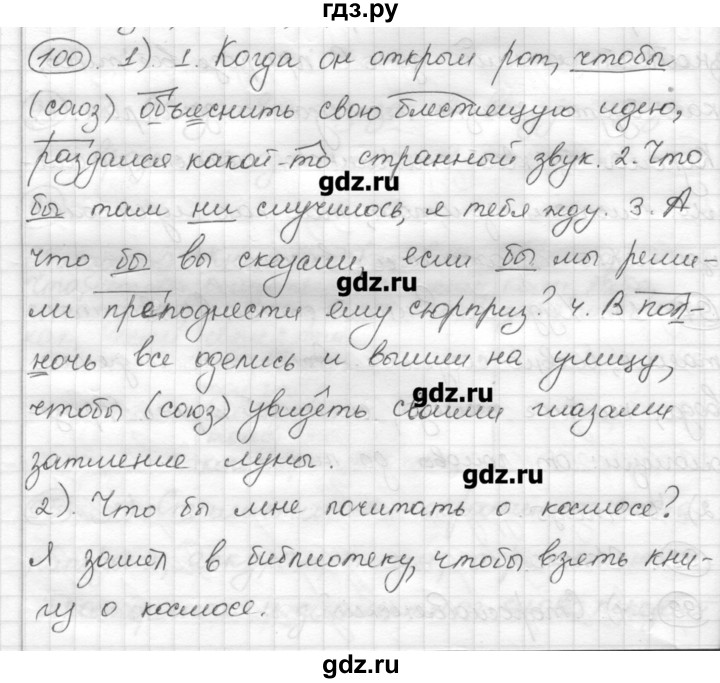 гдз.ру
100 1) 1. Когда он открыл рот, чтобы
(союз) объяснить свою блестящую идею,
раздался какой-то странный звук. 2. Что
gdz.ru
бы там ни случилось, я тебя жду. 3. А
что бы вы сказали, если бы мы реши-
gdz.ru
ли преподнести ему сюрприз? 4. В пол-
ночь все оделись и вышли на улицу,
gdz.ru
чтобы (союз) увидеть своими глазами
затмение луны.
gdz.ru
2). Что бы мне почитать о космосе?
Я зашёл в библиотеку, чтобы взять кни-
гу о космосе.
gdz.ru